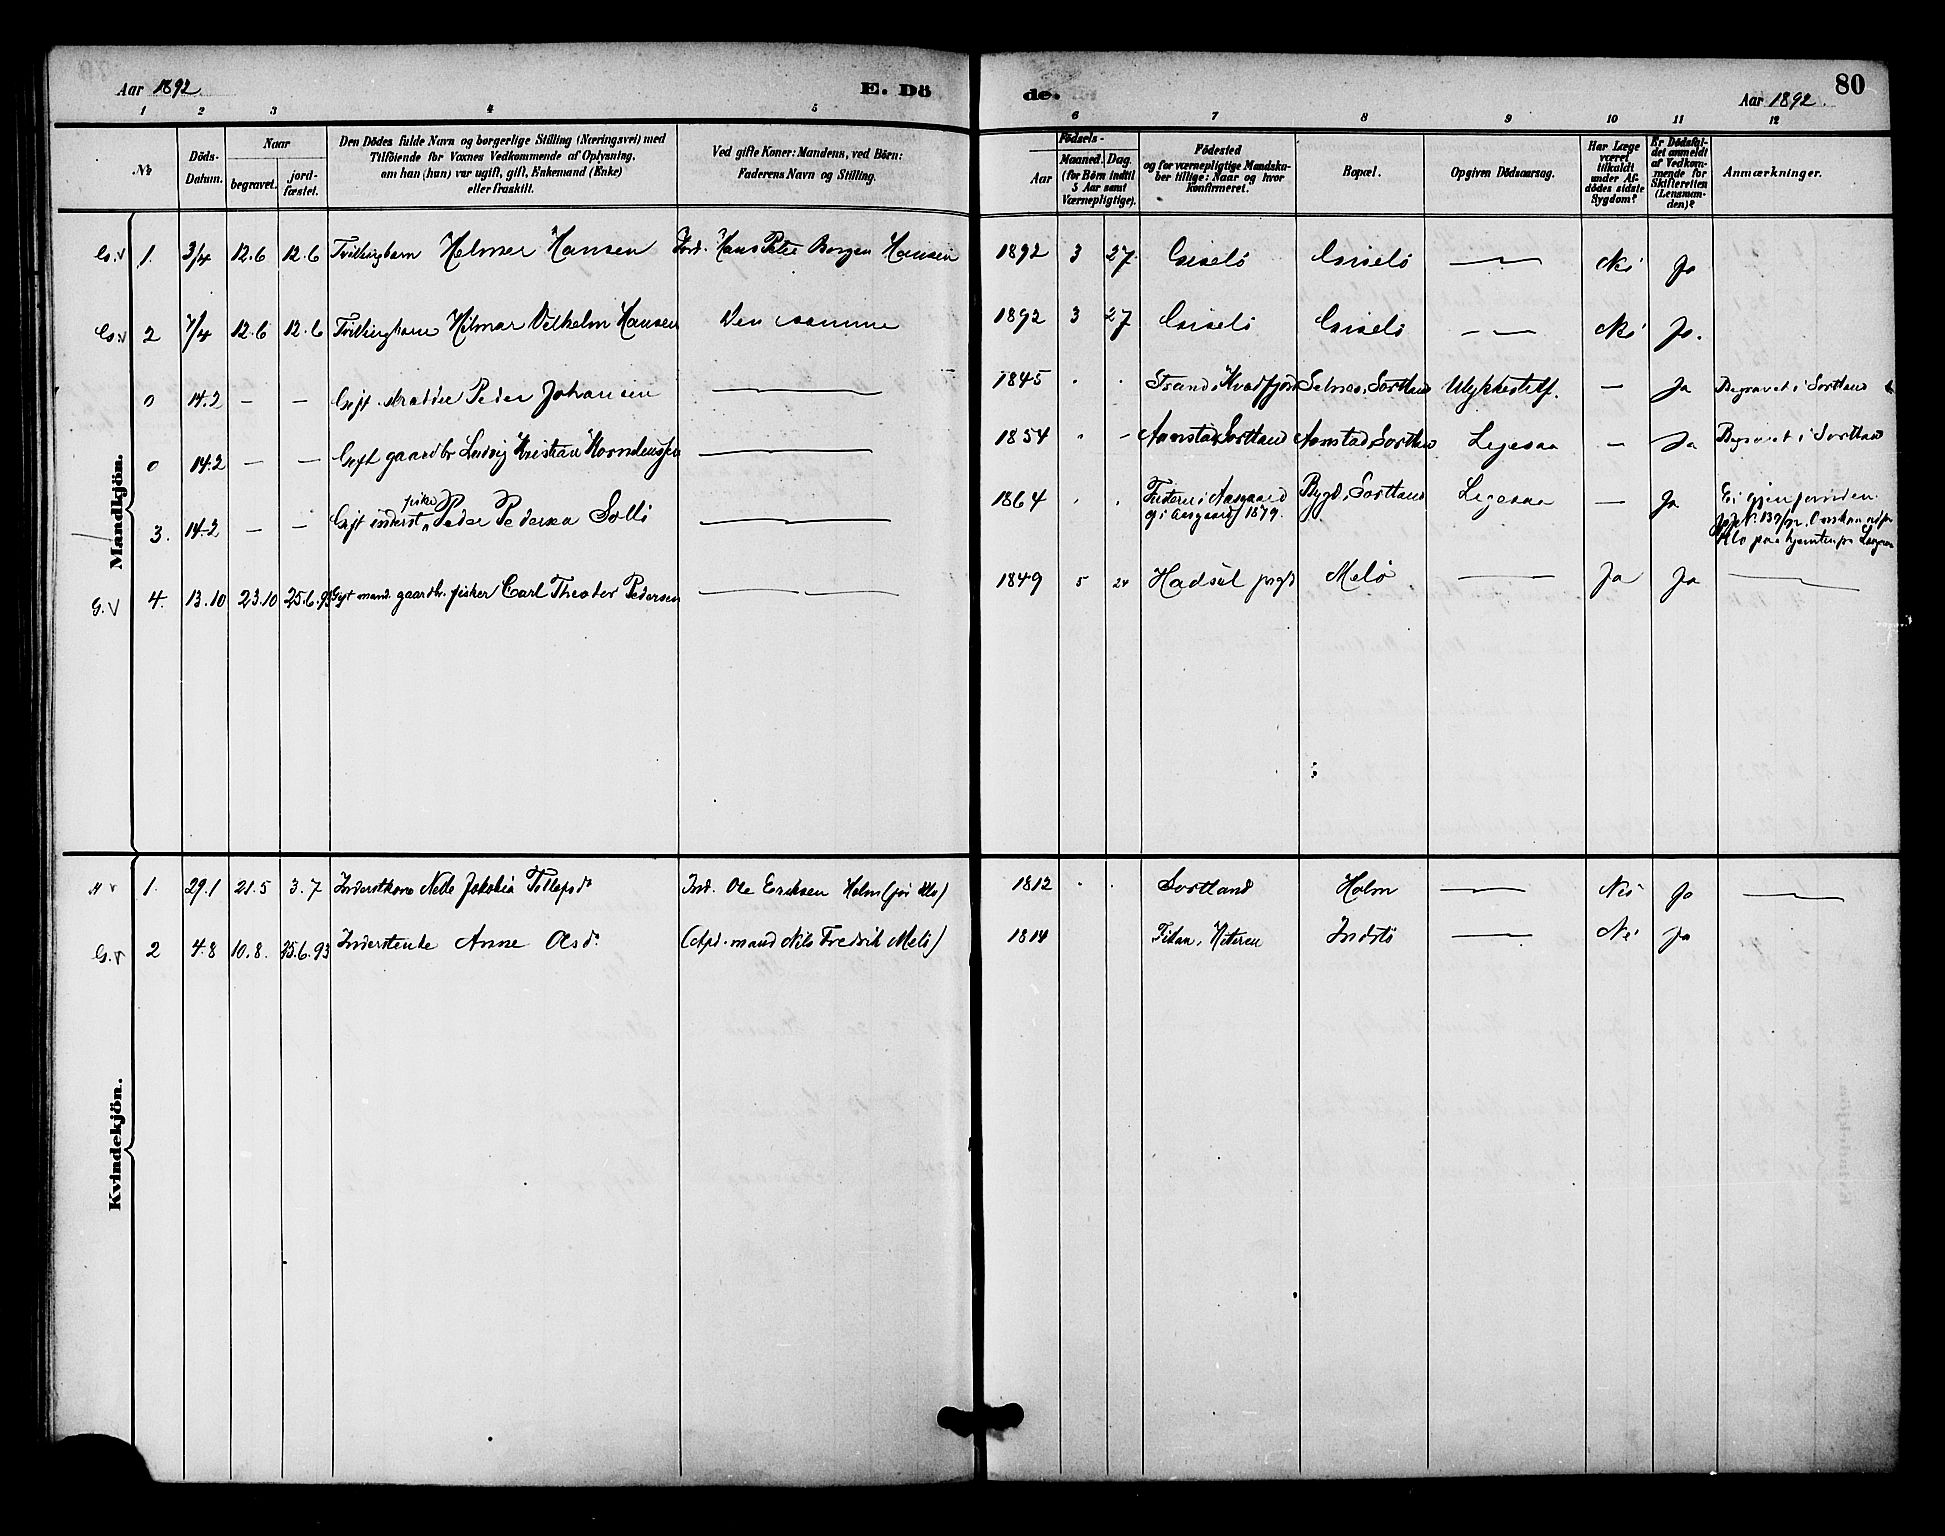 Aar 1892.
E. Dö
de.
80
Aar 1892.
1 2 3 4 5 6 7 8 9 10 11 12
№
Döds-Datum.
Naar
begravet.
jord-fæstet.
Den Dödes fulde Navn og borgerlige Stilling (Næringsvei) med
Tilföiende for Voxnes Vedkommende af Oplysning,
om han (hun) var ugift, gift, Enkemand (Enke)
eller fraskilt.
Ved gifte Koner: Mandens, ved Börn:
Faderens Navn og Stilling.
Födsels-
Aar
Maaned. Dag.
(for Börn indtil
5 Aar samt
Værnepligtige).
Födested
og for værnepligtige Mandska-
ber tillige: Naar og hvor
konfirmeret.
Bopæl.
Opgiven Dödsaarsag.
Har Læge
været
tilkaldt
under Af-
dödes sidste
Sygdom?
Er Dödsfal-
det anmeldt
af Vedkom-
mende for
Skifteretten
(Lensman-
den)?
Anmærkninger.
Mandkjön.
1. 3/4 12.6 12.6 Tvillingbarn Helmer Hansen Hans Peter Borgen Hansen 1892 3 27 Giselö Giselö — Nei Ja
2 7/4 12.6 12.6 Tvillingbarn Hilmar Vilhelm Hansen Den samme 1892 3 27 Giselö Giselö — — Nei Ja.
0 14.2 — — Gift Peder Johansen — 1845 . . Strand i Kvædfjord Selnes, Sortland Ulykkestilf. — Ja Begravet i Sortland
0 14.2 — — Gift gaardbr Ludvig Kristian — 1854 " — Aanstad Sortland Aanstad Sortland Ligesaa — Ja Begravet i Sortland
3. 14.2 — — Gift inderst, fisker Peder Pedersen Solli — 1864 . . i Aasgaard Bygd, Sortland Ligesaa — Ja Ei gjenfunden.
i Aasgaard 1879.
G. V 4. 13.10 23.10 25.6.93 Gift mand. gaardbr. fisker Carl Theodor Pedersen — 1849 5 24 Hadsel prgd Melö — Ja Ja —
Kvindekjön.
1. 29.1 21.5 3.7 Inderstkone Nelle Jakobia Tollefsd. Ind. Ole Eriksen Holm (for Klo) 1812 . . Sortland Holm — Nei Ja —
G. V 2 4.8 10.8. 25.6.93 Inderstenke Anne Olsd. mand Nils Fredrik Melö) 1814 Fillan, Hiteren Indstö — Nei Ja